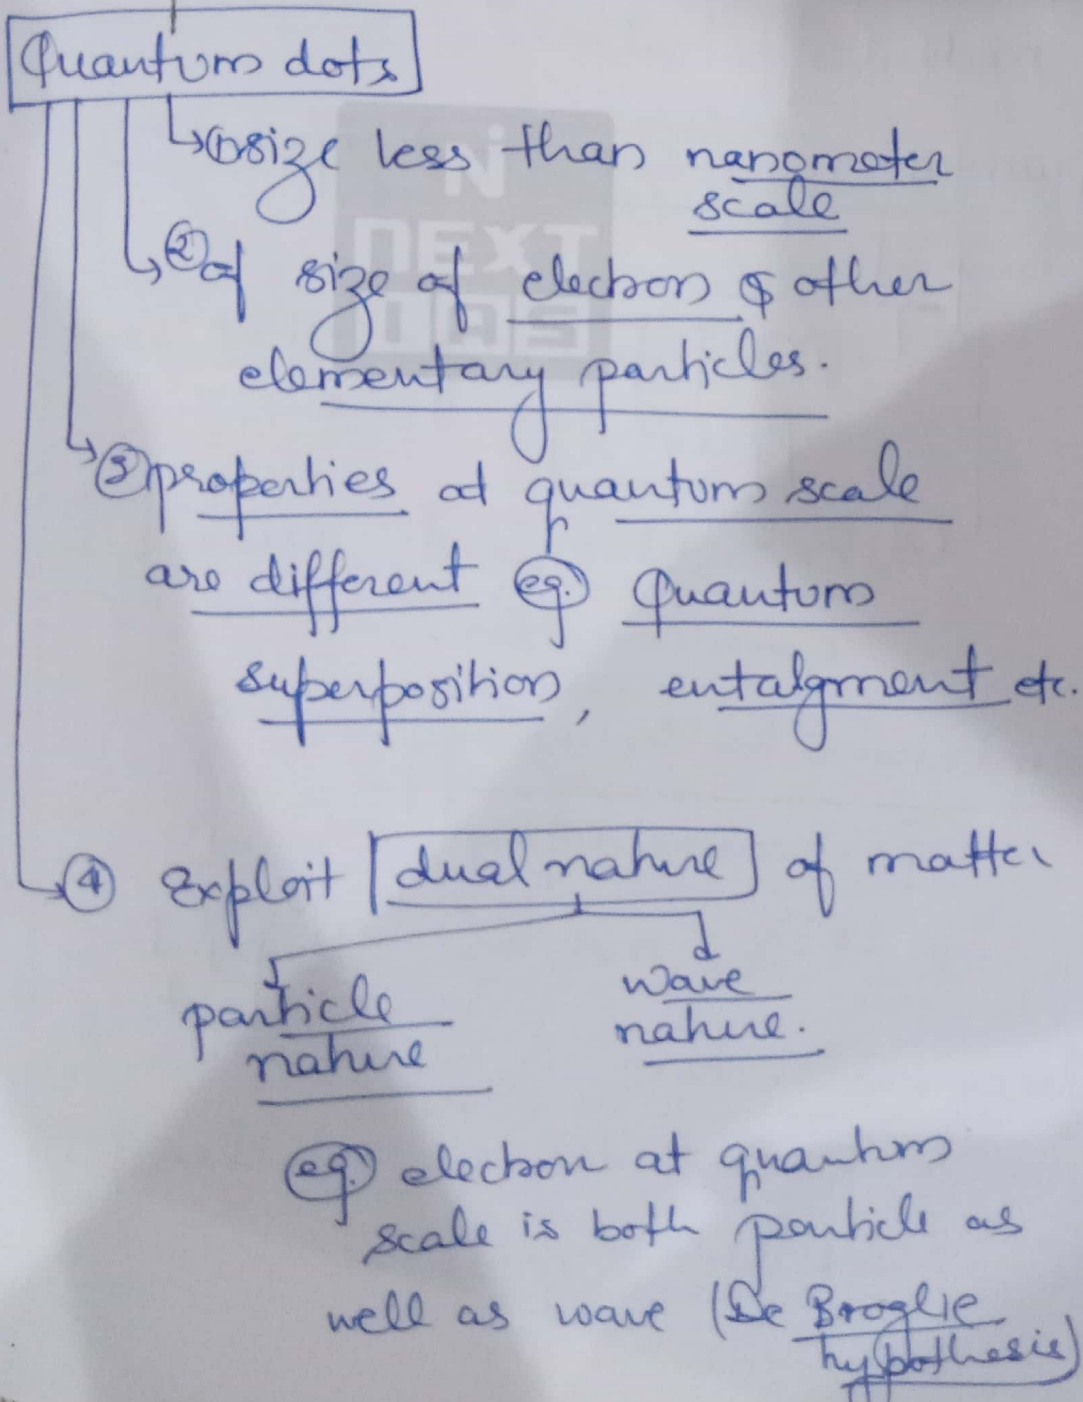 Quantum dots
① size less than nanometer
scale
② of size of electron & other
elementary particles.
③ properties at quantum scale
are different eg. Quantum
superposition, entalgment etc.
④ Exploit dual nature of matter
particle
nature
wave
nature.
eg. electron at quantum
scale is both particle as
well as wave (De Broglie
hypothesis)
NEXT
IAS